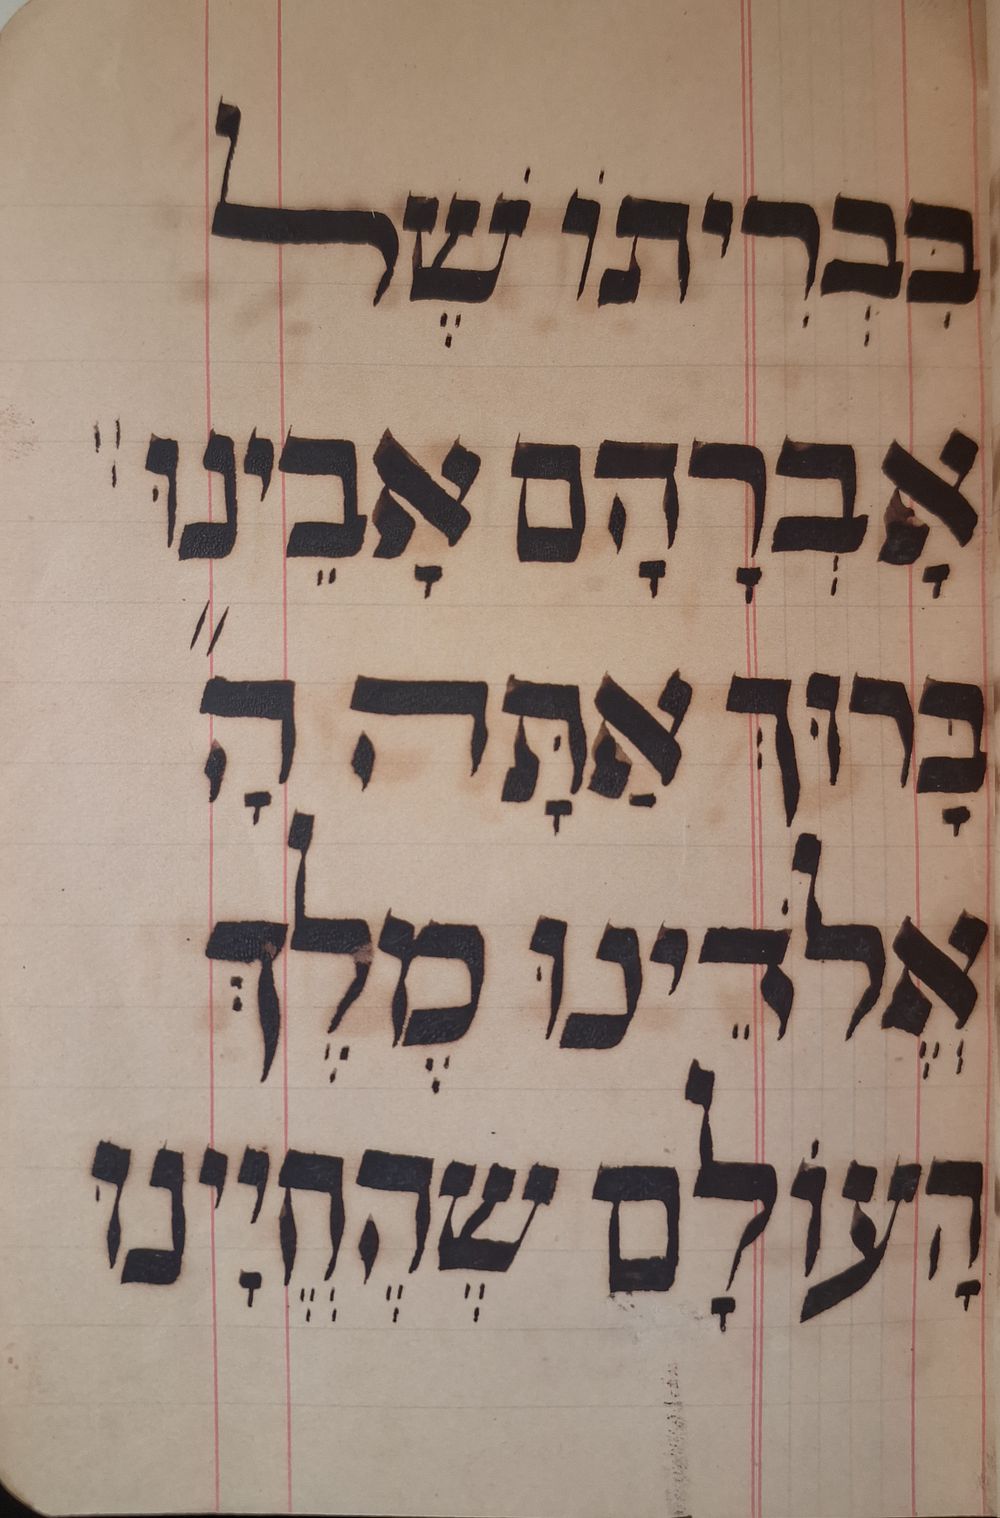 בִּבְרִיתוֹ שֶׁל
אָבְרָהָם אָבֵינוּ ״
בָּרוּךְ אַתָּה הָ״
אֱלֹדֵינוּ מֶלֶךְ
הָעוֹלָם שֶהֶחֱיָינוּ